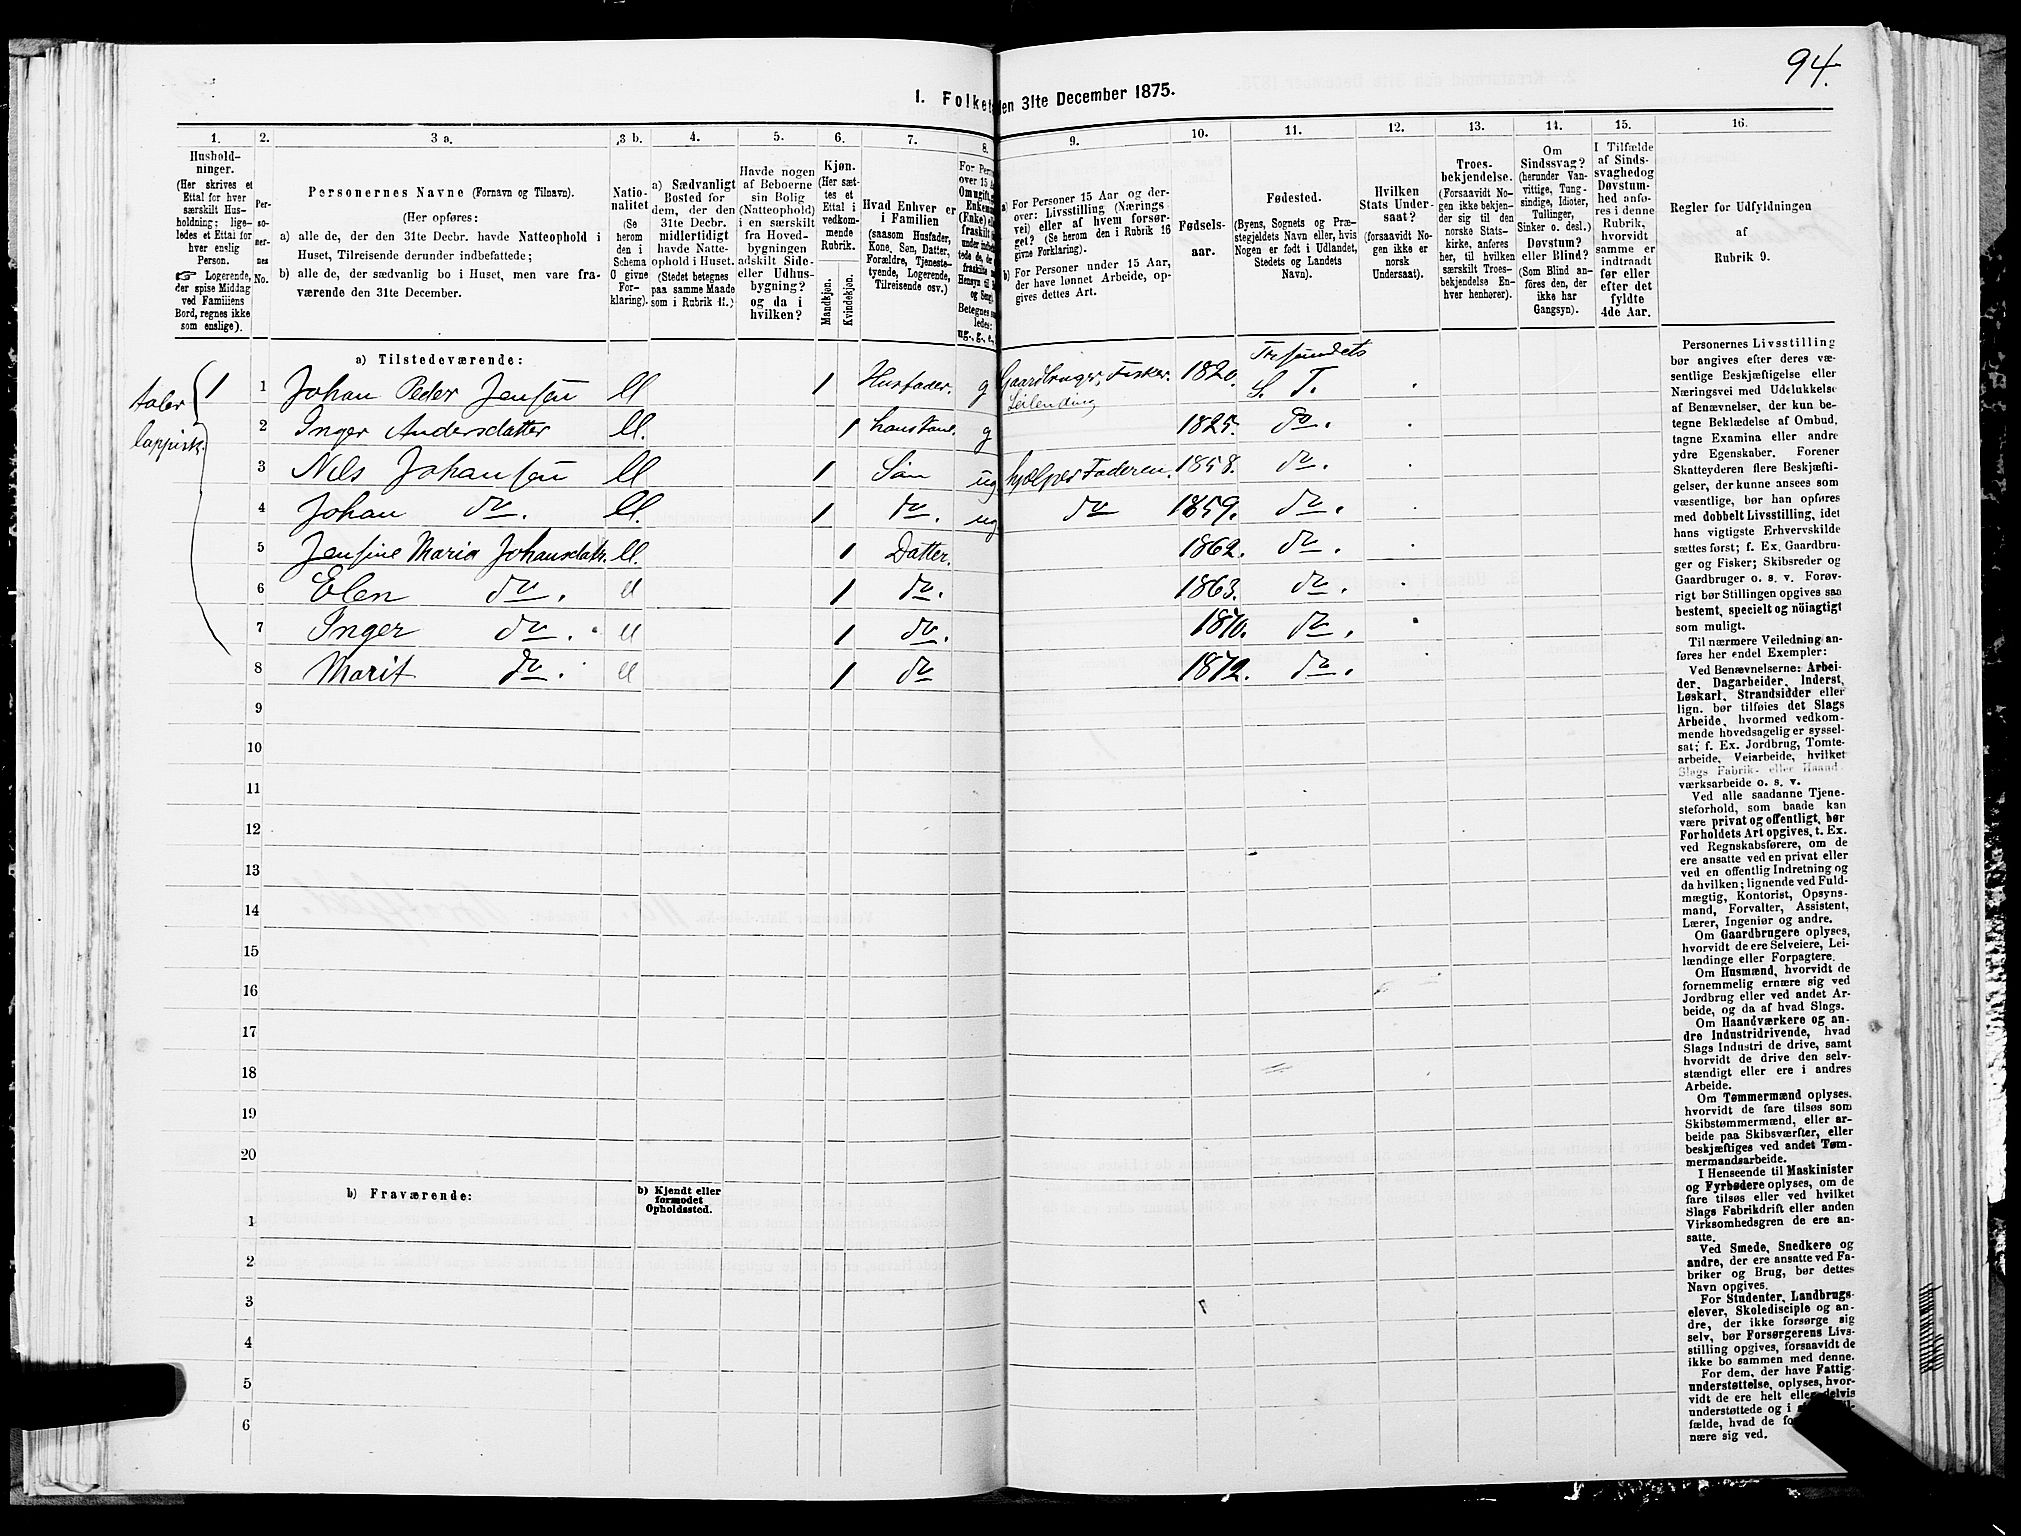 94.
I. Folket
den 31te December 1875.
1.
2.
3 a.
3 b.
4.
5.
6.
7.
8.
9.
10.
11.
12.
13.
14.
15.
16.
Hushold-
ninger.
(Her skrives et
Ettal for hver
særskilt Hus-
holdning; lige-
ledes et Ettal for
hver enslig
Person.
☞ Logerende,
der spise Middag
ved Familiens
Bord, regnes ikke
som enslige).
Per-
so-
ner-
nes
No.
Personernes Navne (Fornavn og Tilnavn).
(Her opføres:
a) alle de, der den 31te Decbr. havde Natteophold i
Huset, Tilreisende derunder indbefattede;
b) alle de, der sædvanlig bo i Huset, men vare fra-
værende den 31te December.
Natio-
nalitet
(Se
herom
den i
Schema
O givne
For-
klaring).
a) Sædvanligt
Bosted for
dem, der den
31te Decbr.
midlertidigt
havde Natte-
ophold i Huset.
(Stedet betegnes
paa samme Maade
som i Rubrik 11.)
Havde nogen
af Beboerne
sin Bolig
(Natteophold)
i en særskilt
fra Hoved-
bygningen
adskilt Side-
eller Udhus-
bygning?
og da i
hvilken?
Kjøn.
(Her sæt-
tes et
Ettal i
vedkom-
mende
Rubrik.
Mandkjøn.
Kvindekjøn.
Hvad Enhver er
i Familien
(saasom Husfader,
Kone, Søn, Datter,
Forældre, Tjeneste-
tyende, Logerende,
Tilreisende osv.)
For Pers
over 15 A
Om ugift, g
Enkem
(Enke) e
fraskilt
Betegnes s
ledes:
ug., g., e.,
a) For Personer 15 Aar og der-
over: Livsstilling (Nærings
vei) eller af hvem forsør-
get? (Se herom den i Rubrik 16
givne Forklaring).
b) For Personer under 15 Aar,
der have lønnet Arbeide, op-
gives dettes Art.
Fødsels-
aar.
Fødested.
(Byens, Sognets og Præ-
stegjeldets Navn eller, hvis
Nogen er født i Udlandet,
Stedets og Landets
Navn).
Hvilken
Stats Under-
saat?
(forsaavidt No-
gen ikke er
norsk
Undersaat).
Troes-
bekjendelse.
(Forsaavidt No-
gen ikke bekjen-
der sig til den
norske Stats-
kirke, anføres
her, til hvilken
særskilt Troes-
bekjendelse En-
hver henhører).
Om
Sindssvag?
(herunder Van-
vittige, Tung-
sindige, Idioter,
Tullinger,
Sinker o. desl.)
Døvstum?
eller Blind?
(Som Blind an-
føres den, der
ikke har
Gangsyn).
I Tilfælde
af Sinds-
svaghed og
Døvstum-
hed anfø-
res i denne
Rubrik,
hvorvidt
samme er
indtraadt
før eller
efter det
fyldte
4de Aar.
Regler for Udfyldningen
af
Rubrik 9.
a) Tilstedeværende:
taler
lappisk.
1 1 Johan Peder Jensøn 1 Husfader. g Gaardbruger, Fisker. 1820. Trsundets
Leilending S. T.
2 Inger Andersdatter 1 hans Kone. g 1825. do.
3 Nils Johansøn 1 Søn ug hjælper Faderen. 1858. do.
4 Johan do. 1 do. ug do 1859. do.
5 Jensine Maria Johansdatr. 1 Datter. 1862. do.
6 Elen do. 1 do. 1863. do.
7 Inger do. 1 do. 1870. do.
8 Marit do. 1 do 1872. do.
9
10
11
12
13
14
15
16
17
18
19
20
b) Fraværende:
b) Kjendt eller
formodet
Opholdssted.
1
2
3
4
5
6
Personernes Livsstilling
bør angives efter deres væ-
sentlige Beskjæftigelse eller
Næringsvei med Udelukkelse
af Benævnelser, der kun be-
tegne Beklædelse af Ombud,
tagne Examina eller andre
ydre Egenskaber. Forener
Skatteyderen flere Beskjæfti-
gelser, der kunne ansees som
væsentlige, bør han opføres
med dobbelt Livsstilling, idet
hans vigtigste Erhvervskilde
sættes først; f. Ex. Gaardbru-
ger og Fisker; Skibsreder og
Gaardbruger o. s. v. Forøv-
rigt bør Stillingen opgives saa
bestemt, specielt og nöiagtigt
som muligt.
Til nærmere Veiledning an-
føres her endel Exempler:
Ved Benævnelserne: Arbei-
der, Dagarbeider, Inderst,
Løskarl, Strandsidder eller
lign. bør tilføies det Slags
Arbeide, hvormed vedkom-
mende hovedsagelig er syssel-
sat; f. Ex. Jordbrug, Tomte-
arbeide, Veiarbeide, hvilket
Slags Fabrik- eller Haand-
værksarbeide o. s. v.
Ved alle saadanne Tjene-
steforhold, som baade kan
være privat og offentligt, bør
Forholdets Art opgives, t. Ex.
ved Regnskabsførere, om de
ere ansatte ved en privat eller
ved en offentlig Indretning og
da hvilken; lignende ved Fuld-
mægtig, Kontorist, Opsyns-
mand, Forvalter, Assistent,
Lærer, Ingeniør og andre.
Om Gaardbrugere oplyses,
hvorvidt de ere Selveiere, Lei-
lændinge eller Forpagtere.
Om Husmænd, hvorvidt de
fornemmelig ernære sig ved
Jordbrug eller ved andet Ar-
beide, og da af hvad Slags.
Om Haandværkere og an-
dre Industridrivende, hvad
Slags Industri de drive, samt
hvorvidt de drive den selv-
stændigt eller ere i andres
Arbeide.
Om Tømmermænd oplyses,
hvorvidt de fare tilsøs som
Skibstømmermænd, eller ar-
beide paa Skibsværfter, eller
beskjæftiges ved andet Tøm-
mermandsarbeide.
I Henseende til Maskinister
og Fyrbødere oplyses, om de
fare tilsøs eller ved hvilket
Slags Fabrikdrift eller anden
Virksomhedsgren de ere an-
satte.
Ved Smede, Snedkere og
andre, der ere ansatte ved Fa-
briker og Brug, bør dettes
Navn opgives.
For Studenter, Landbrugs-
elever, Skoledisciple og an-
dre, der ikke forsørge sig
selv, bør Forsørgerens Livs-
stilling opgives, forsaavidt de
ikke bo sammen med denne.
For dem, der have Fattig-
understøttelse, oplyses, hvor-
vidt de ere helt eller delvis
understøttede og i
fælde, hvad de
nære sig ved.